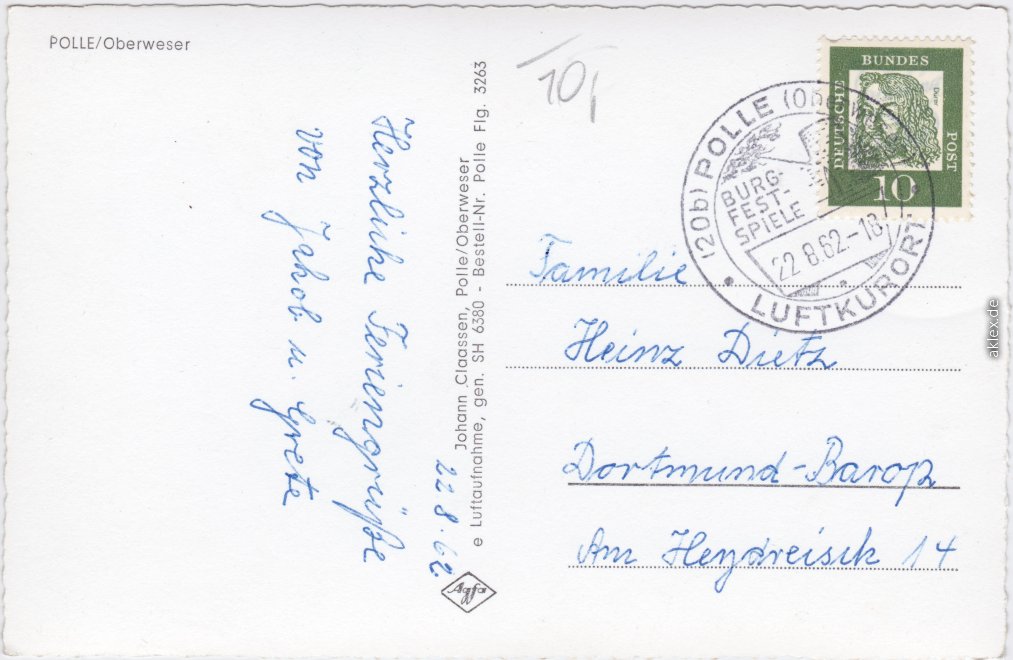 POLLE/Oberweser
Herzliche Feriengrüße
von Jakob u. Grete
22.8.62
Johann Claassen, Polle/Oberweser
e Luftaufnahme, gen. SH 6380 - Bestell-Nr. Polle Flg. 3263
Agfa
10
DEUTSCHE BUNDES POST
Dürer
10
(20b) POLLE
BURG-
FEST-
SPIELE
22.8.62-18
LUFTKURORT
Familie
Heinz Dietz
Dortmund-Barop
Am Heydreisck 14
aklex.de